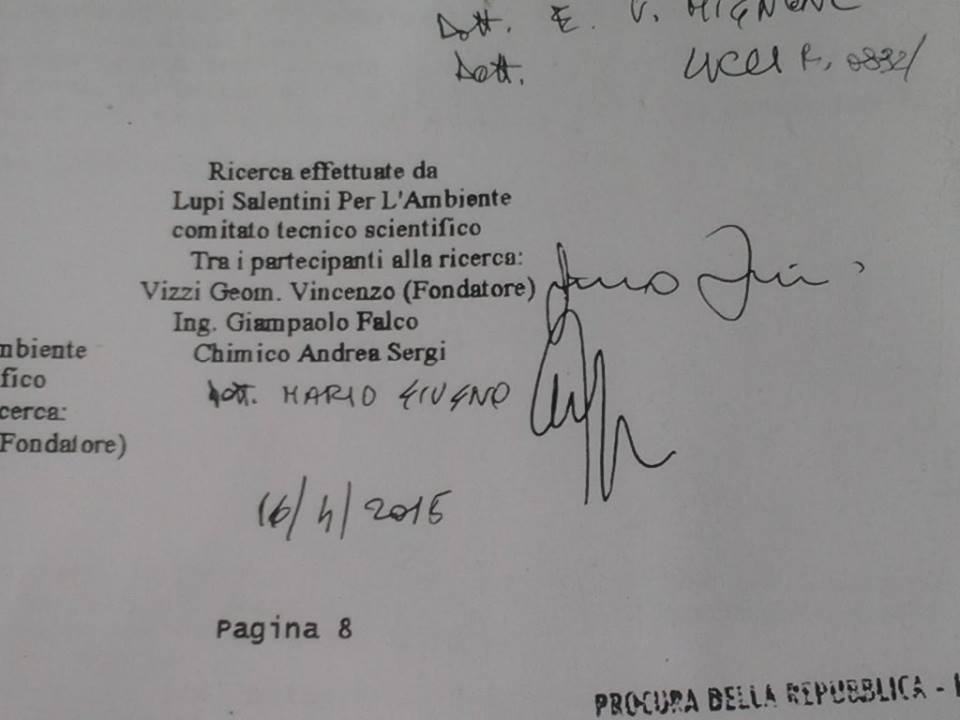 Dott. E. V. MIGNONE
Dott. R. 0832/
Ricerca effettuate da
Lupi Salentini Per L'Ambiente
comitato tecnico scientifico
Tra i partecipanti alla ricerca:
Vizzi Geom. Vincenzo (Fondatore)
Ing. Giampaolo Falco
Chimico Andrea Sergi
Dott. MARIO GIUGNO
nbiente
fico
cerca:
Fondatore)
16/4/2015
Pagina 8
PROCURA DELLA REPUBBLICA -